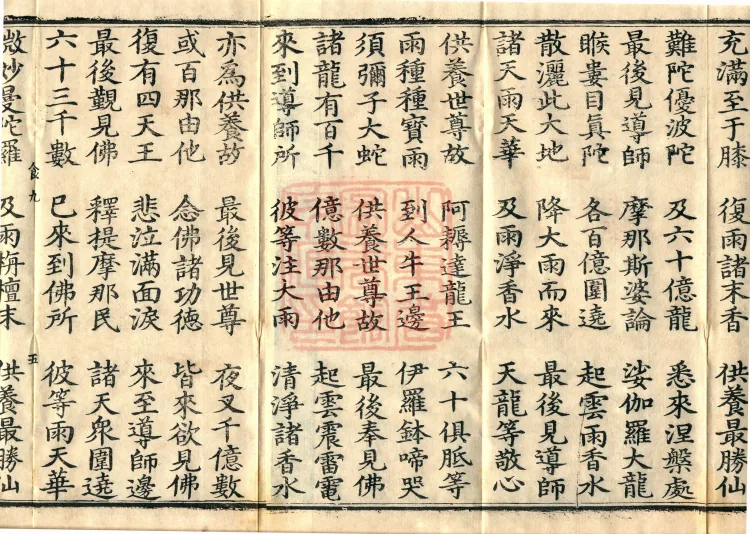 充滿至于膝 復雨諸末香 供養最勝仙
難陀優波陀 及六十億龍 悉來涅槃處
最後見導師 摩那斯婆論 娑伽羅大龍
睺婁目眞陀 各百億圍遶 起雲雨香水
散灑此大地 降大雨而來 最後見導師
諸天雨天華 及雨淨香水 天龍等敬心
供養世尊故 阿耨達龍王 六十俱胝等
雨種種寶雨 到人牛王邊 伊羅鉢啼哭
須彌子大蛇 供養世尊故 最後奉見佛
諸龍有百千 億數那由他 起雲震雷電
來到導師所 彼等注大雨 清淨諸香水
亦爲供養故 最後見世尊 夜叉千億數
或百那由他 念佛諸功德 皆來欲見佛
復有四天王 悲泣滿面淚 來至導師邊
最後觀見佛 釋提摩那民 諸天衆圍遶
六十三千數 已來到佛所 彼等雨天華
食九 五
微妙曼陀羅 及雨栴檀末 供養最勝仙